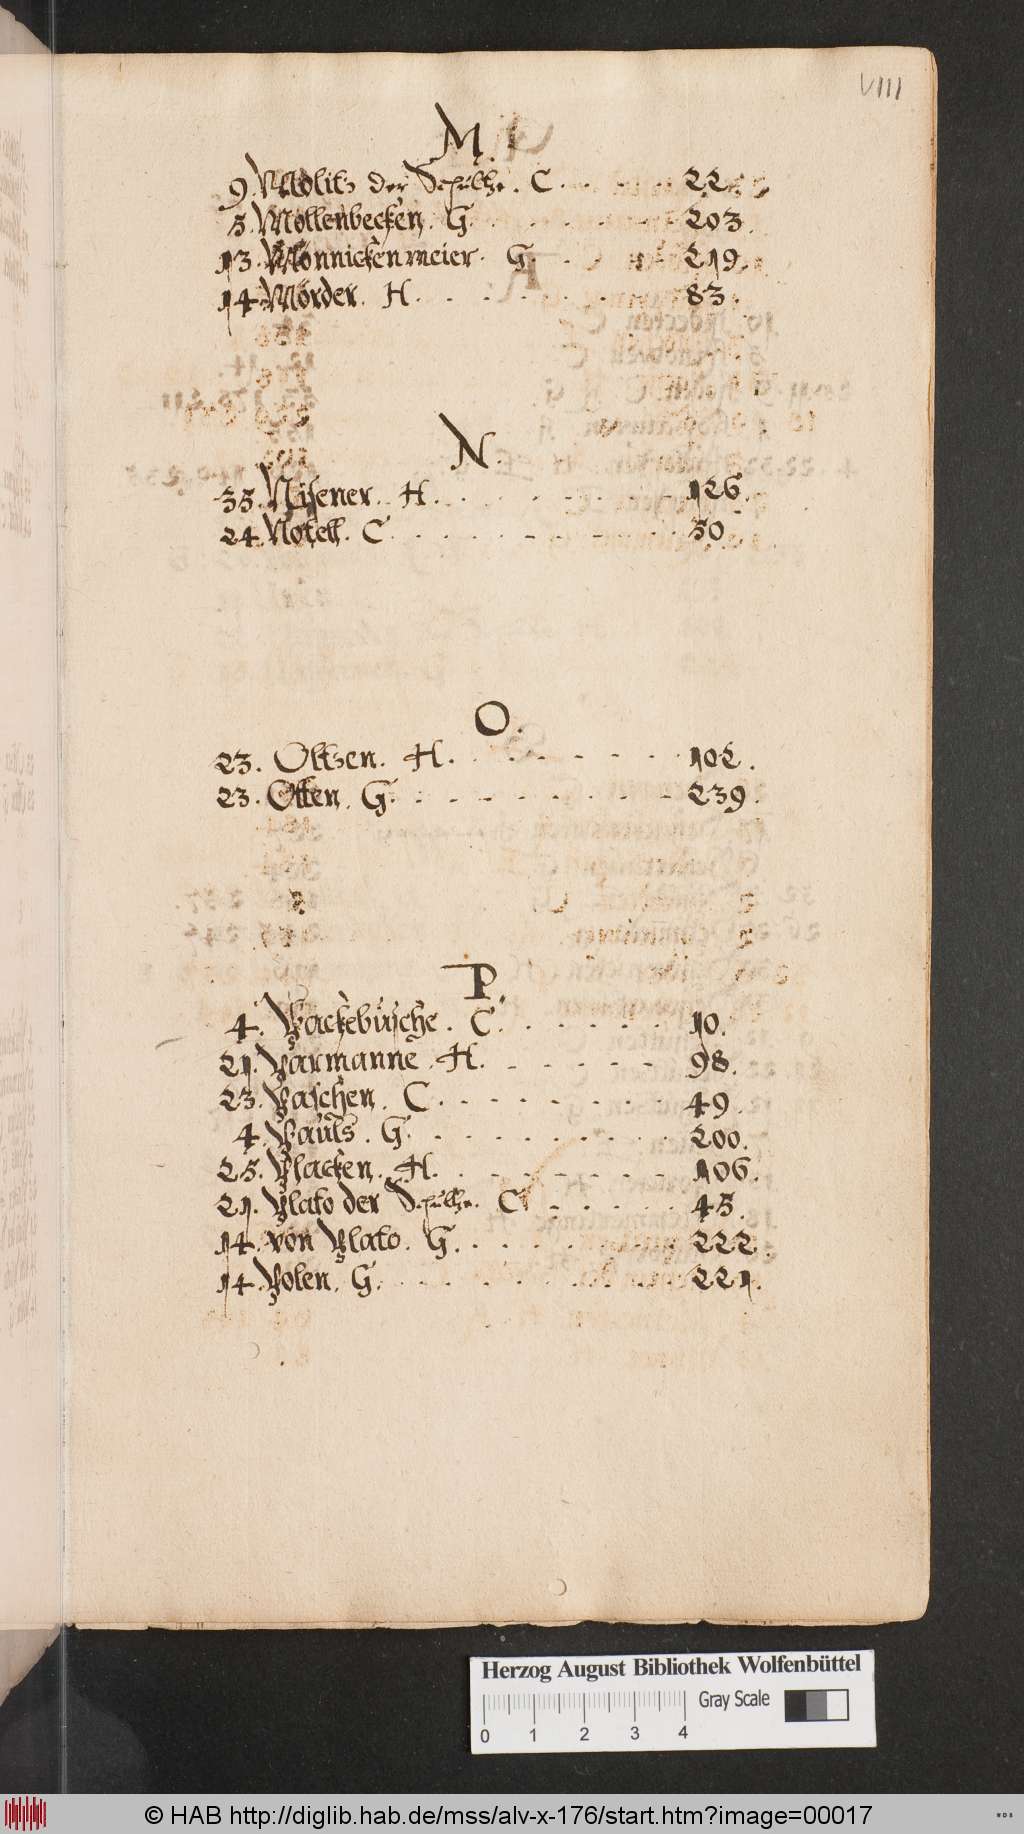 VIII
M.
9. Molitz der Schultze. C. 22.
5. Mollenbecken. G. 203.
13. Monnickenmeier. G. 219.
14. Mörder. H. 83.
N.
33. Nisener. H. 126.
24. Notell. C. 50.
O.
23. Oltzen. H. 102.
23. Otten. G. 239.
P.
4. Packebüsche. C. 10.
21. Parmanne. H. 98.
23. Paschen. C. 49.
4. Pauls. G. 200.
25. Placken. H. 106.
21. Plato der Schultze. C. 45.
14. von Plato. G. 222.
14. Polen. G. 221.
Herzog August Bibliothek Wolfenbüttel
Gray Scale
0 1 2 3 4
© HAB http://diglib.hab.de/mss/alv-x-176/start.htm?image=00017